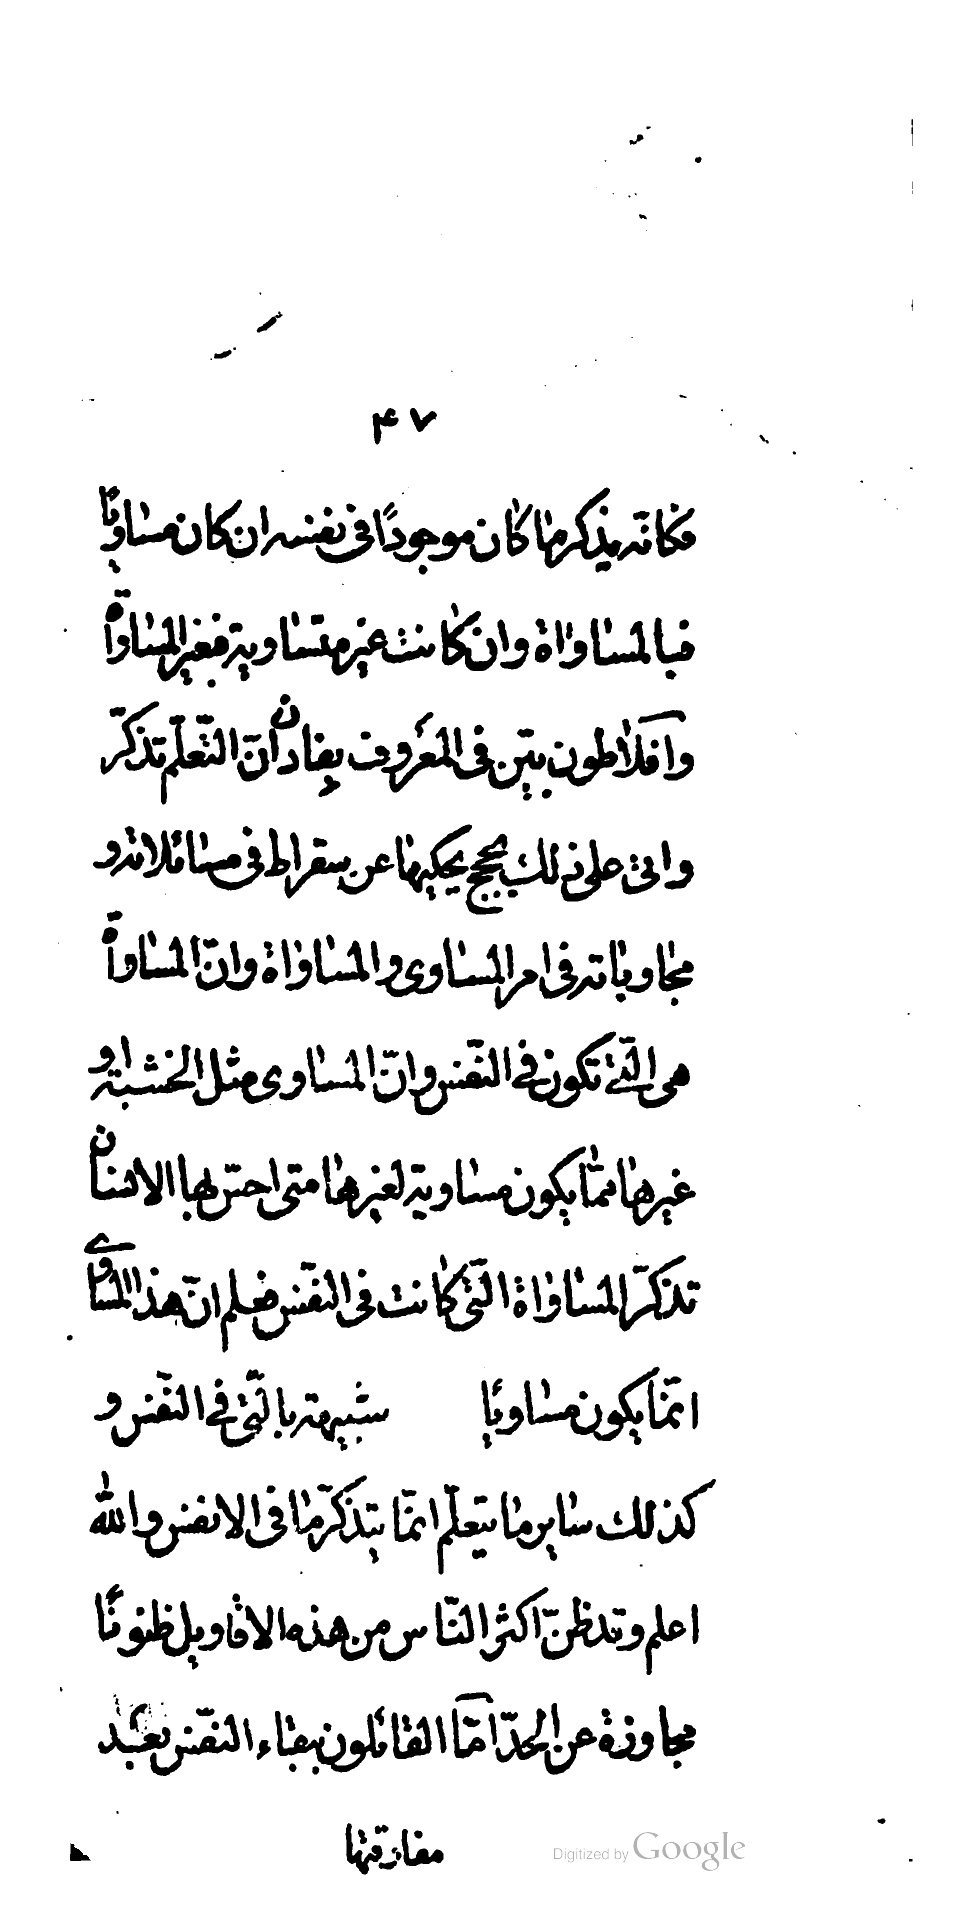 ۴۷
فكانّه يذكر ما كان موجودًا في نفسه ان كان مساويًا
فبالمساواة وان كانت غير متساوية فبغير المساواة
وافلاطون بيّن في المعروف بفادن انّ التّعلّم تذكّر
واتى على ذلك بحجج يحكيها عن سقراط في مسائلاته و
مجاوباته في امر المساوى والمساواة وانّ المساواة
هى الّتى تكون في النّفس وانّ المساوى مثل الخشبة او
غيرها ممّا يكون مساوية لغيرها متى احسّ بها الانسان
تذكّر المساواة الّتى كانت في النّفس فعلم انّ هذا المساوى
انّما يكون مساويًا شبيهة بالّتى في النّفس و
كذلك ساير ما يتعلّم انّما يتذكّر ما في الانفس والله
اعلم وقد ظنّ اكثر النّاس من هذه الاقاويل ظنونًا
مجاوزة عن الحدّ امّا القائلون ببقاء النّفس بعد
مفارقتها
Digitized by Google